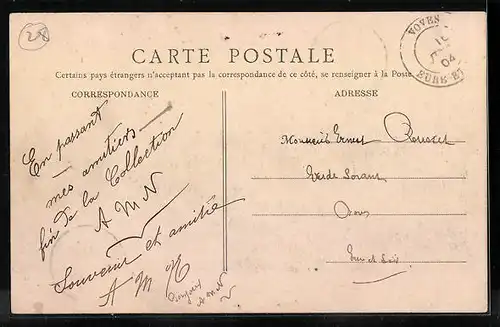 28
VOVES
10
04
EURE-ET
CARTE POSTALE
Certains pays étrangers n'acceptant pas la correspondance de ce côté, se renseigner à la Poste
CORRESPONDANCE
En passant
mes amitiers
fin de la Collection
A M N
Souvenir et amitié
A M N
A M N
ADRESSE
Monsieur Ernest Rousset
Voves
Eure et Loir